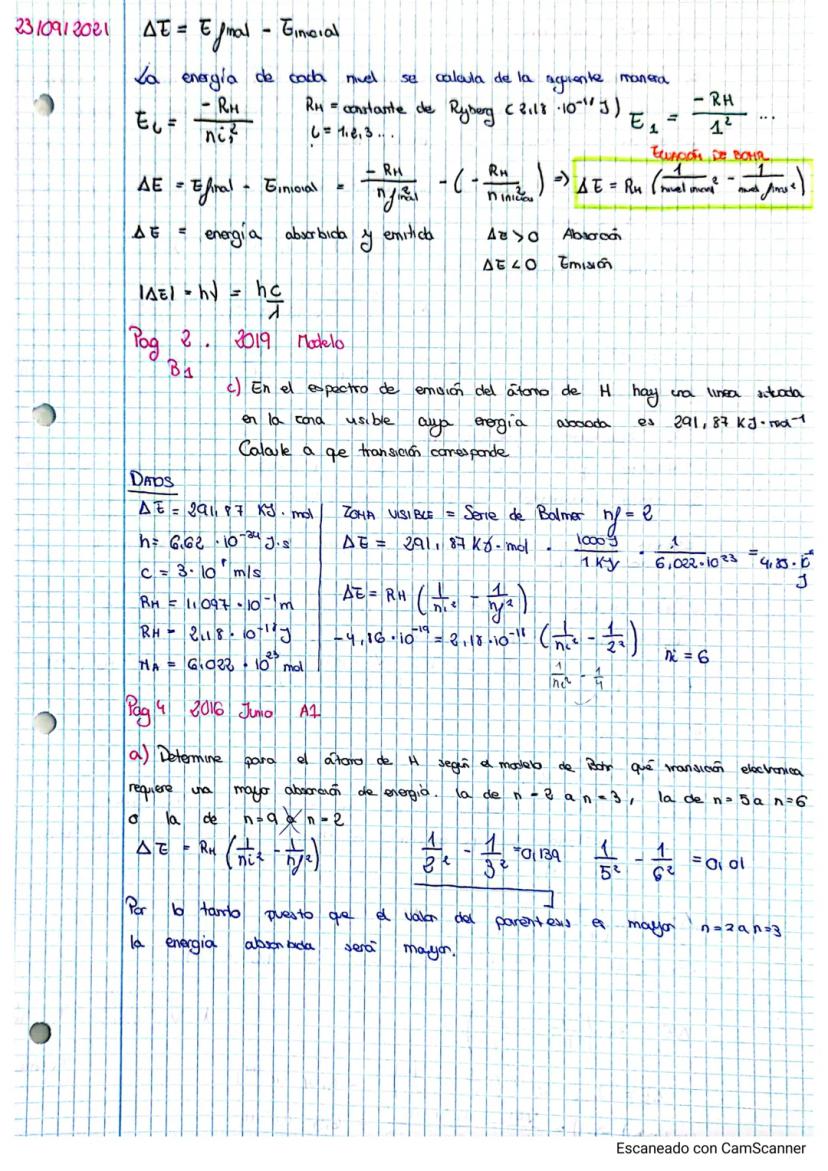 23/09/2021
ΔE = E final - E inicial
La energía de cada nivel se calcula de la siguiente manera
Ei = -RH / ni² RH = constante de Ryberg (2,18 · 10⁻¹⁸ J) E1 = -RH / 1² ...
i = 1, 2, 3 ...
ECUACIÓN DE BOHR
ΔE = E final - E inicial = -RH / n final² - (- RH / n inicial²) => ΔE = RH (1 / nivel inicial² - 1 / nivel final²)
ΔE = energía absorbida y emitida ΔE > 0 Absorción
ΔE < 0 Emisión
|ΔE| = hν = hc / λ
Pag 2. 2019 Modelo
B1
c) En el espectro de emisión del átomo de H hay una linea situada
en la zona visible cuya energía asociada es 291,87 KJ · mol⁻¹
Calcule a qe transición corresponde
DATOS
ΔE = 291,87 KJ · mol
h = 6,62 · 10⁻³⁴ J·s
c = 3 · 10⁸ m/s
RH = 1,097 · 10⁻¹ m
RH = 2,18 · 10⁻¹⁸ J
NA = 6,022 · 10²³ mol
ZONA VISIBLE = Serie de Balmer nf = 2
ΔE = 291,87 KJ · mol · 1000 J / 1 KJ · 1 / 6,022 · 10²³ = 4,85 · 10 J
ΔE = RH (1 / ni² - 1 / nf²)
-4,86 · 10⁻¹⁹ = 2,18 · 10⁻¹⁸ (1 / ni² - 1 / 2²) ni = 6
1 / ni² - 1 / 4
Pag 4 2016 Junio A1
a) Determine para el átomo de H según el modelo de Bohr qué transición electronica
requiere una mayor absorción de energía. la de n = 2 a n = 3, la de n = 5 a n = 6
o la de n = 9 a n = 2
ΔE = RH (1 / ni² - 1 / nf²) 1 / 2² - 1 / 3² = 0,139 1 / 5² - 1 / 6² = 0,01
Por lo tanto puesto que el valor del parentesis es mayor n = 2 a n = 3
la energia absorbida será mayor.
Escaneado con CamScanner